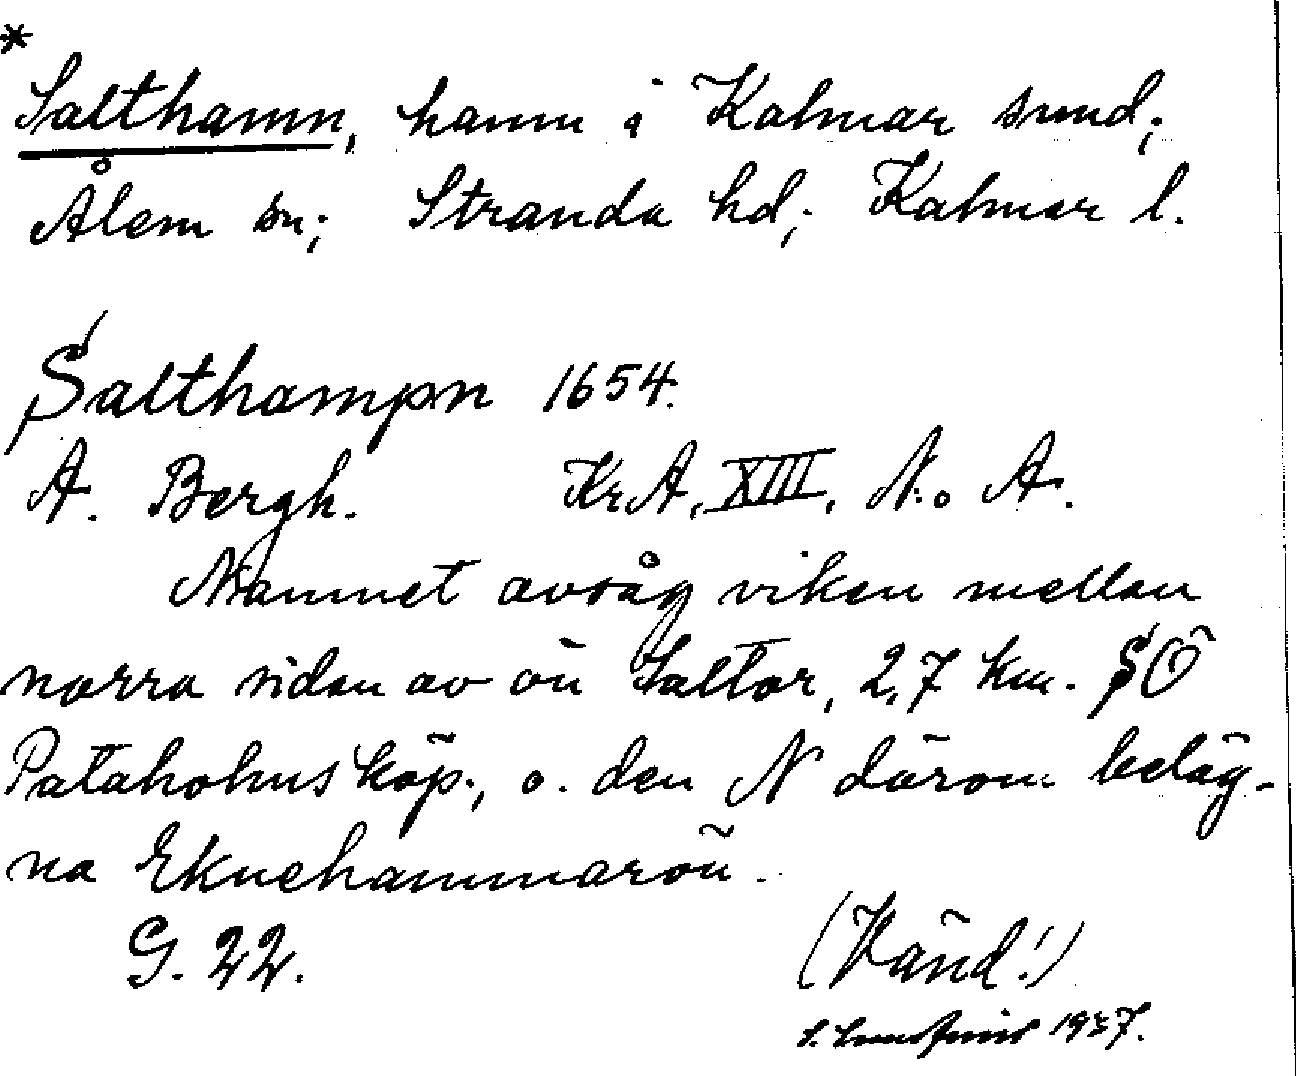 *
Salthamn, hamn i Kalmar sund;
Ålem sn; Stranda hd; Kalmar l.
Salthampn 1654.
A. Bergh. KrA, XIII, N:o A.
Namnet avsåg viken mellan
norra sidan av ön Saltor, 2,7 km. SÖ
Pataholms köp., o. den N därom beläg-
na Eknehammarön.
G. 22.
(Vänd!)
1937.